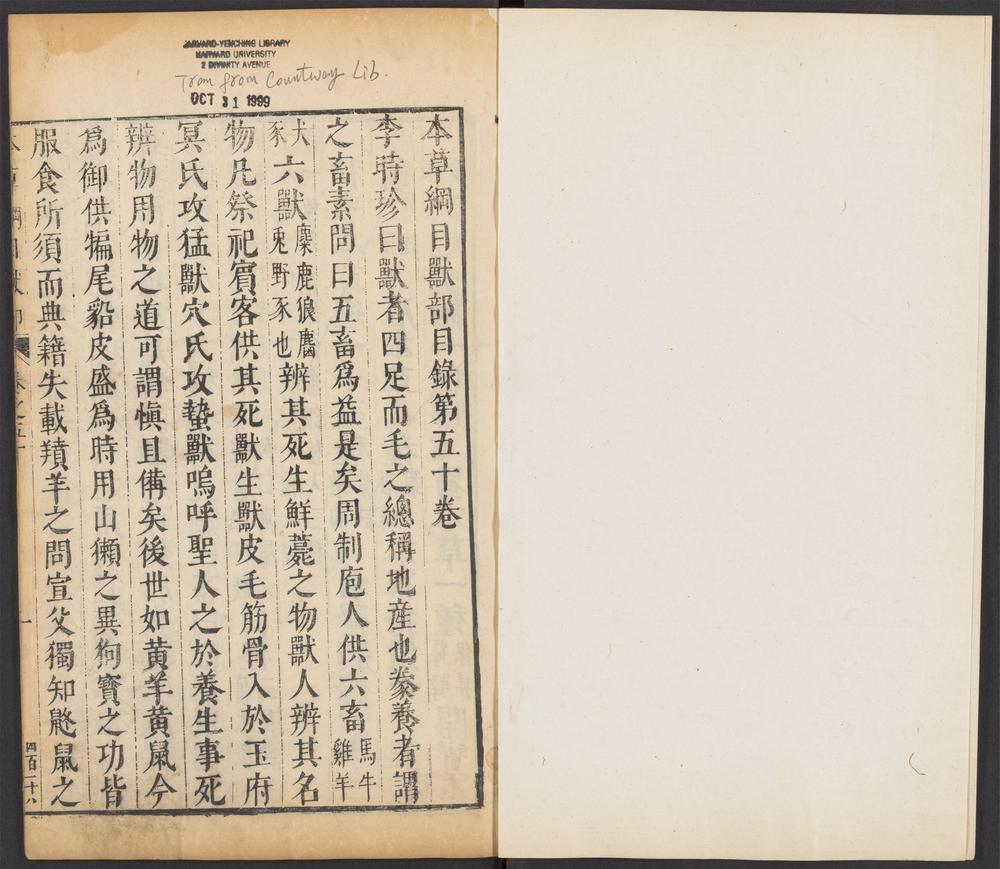 HARVARD-YENCHING LIBRARY
HARVARD UNIVERSITY
2 DIVINITY AVENUE
Tran from Countway Lib.
OCT 31 1999
本草綱目獸部目錄第五十卷
李時珍曰獸者四足而毛之總稱地産也豢養者謂
之畜素問曰五畜爲益是矣周制庖人供六畜馬牛雞羊
犬豕六獸麋鹿狼麕兎野豕也辨其死生鮮薧之物獸人辨其名
物凡祭祀賓客供其死獸生獸皮毛筋骨入於玉府
冥氏攻猛獸穴氏攻蟄獸嗚呼聖人之於養生事死
辨物用物之道可謂愼且備矣後世如黄羊黄鼠今
爲御供犏尾貂皮盛爲時用山獺之異狗寳之功皆
服食所須而典籍失載羵羊之問宣父獨知鼮鼠之
四百二十八